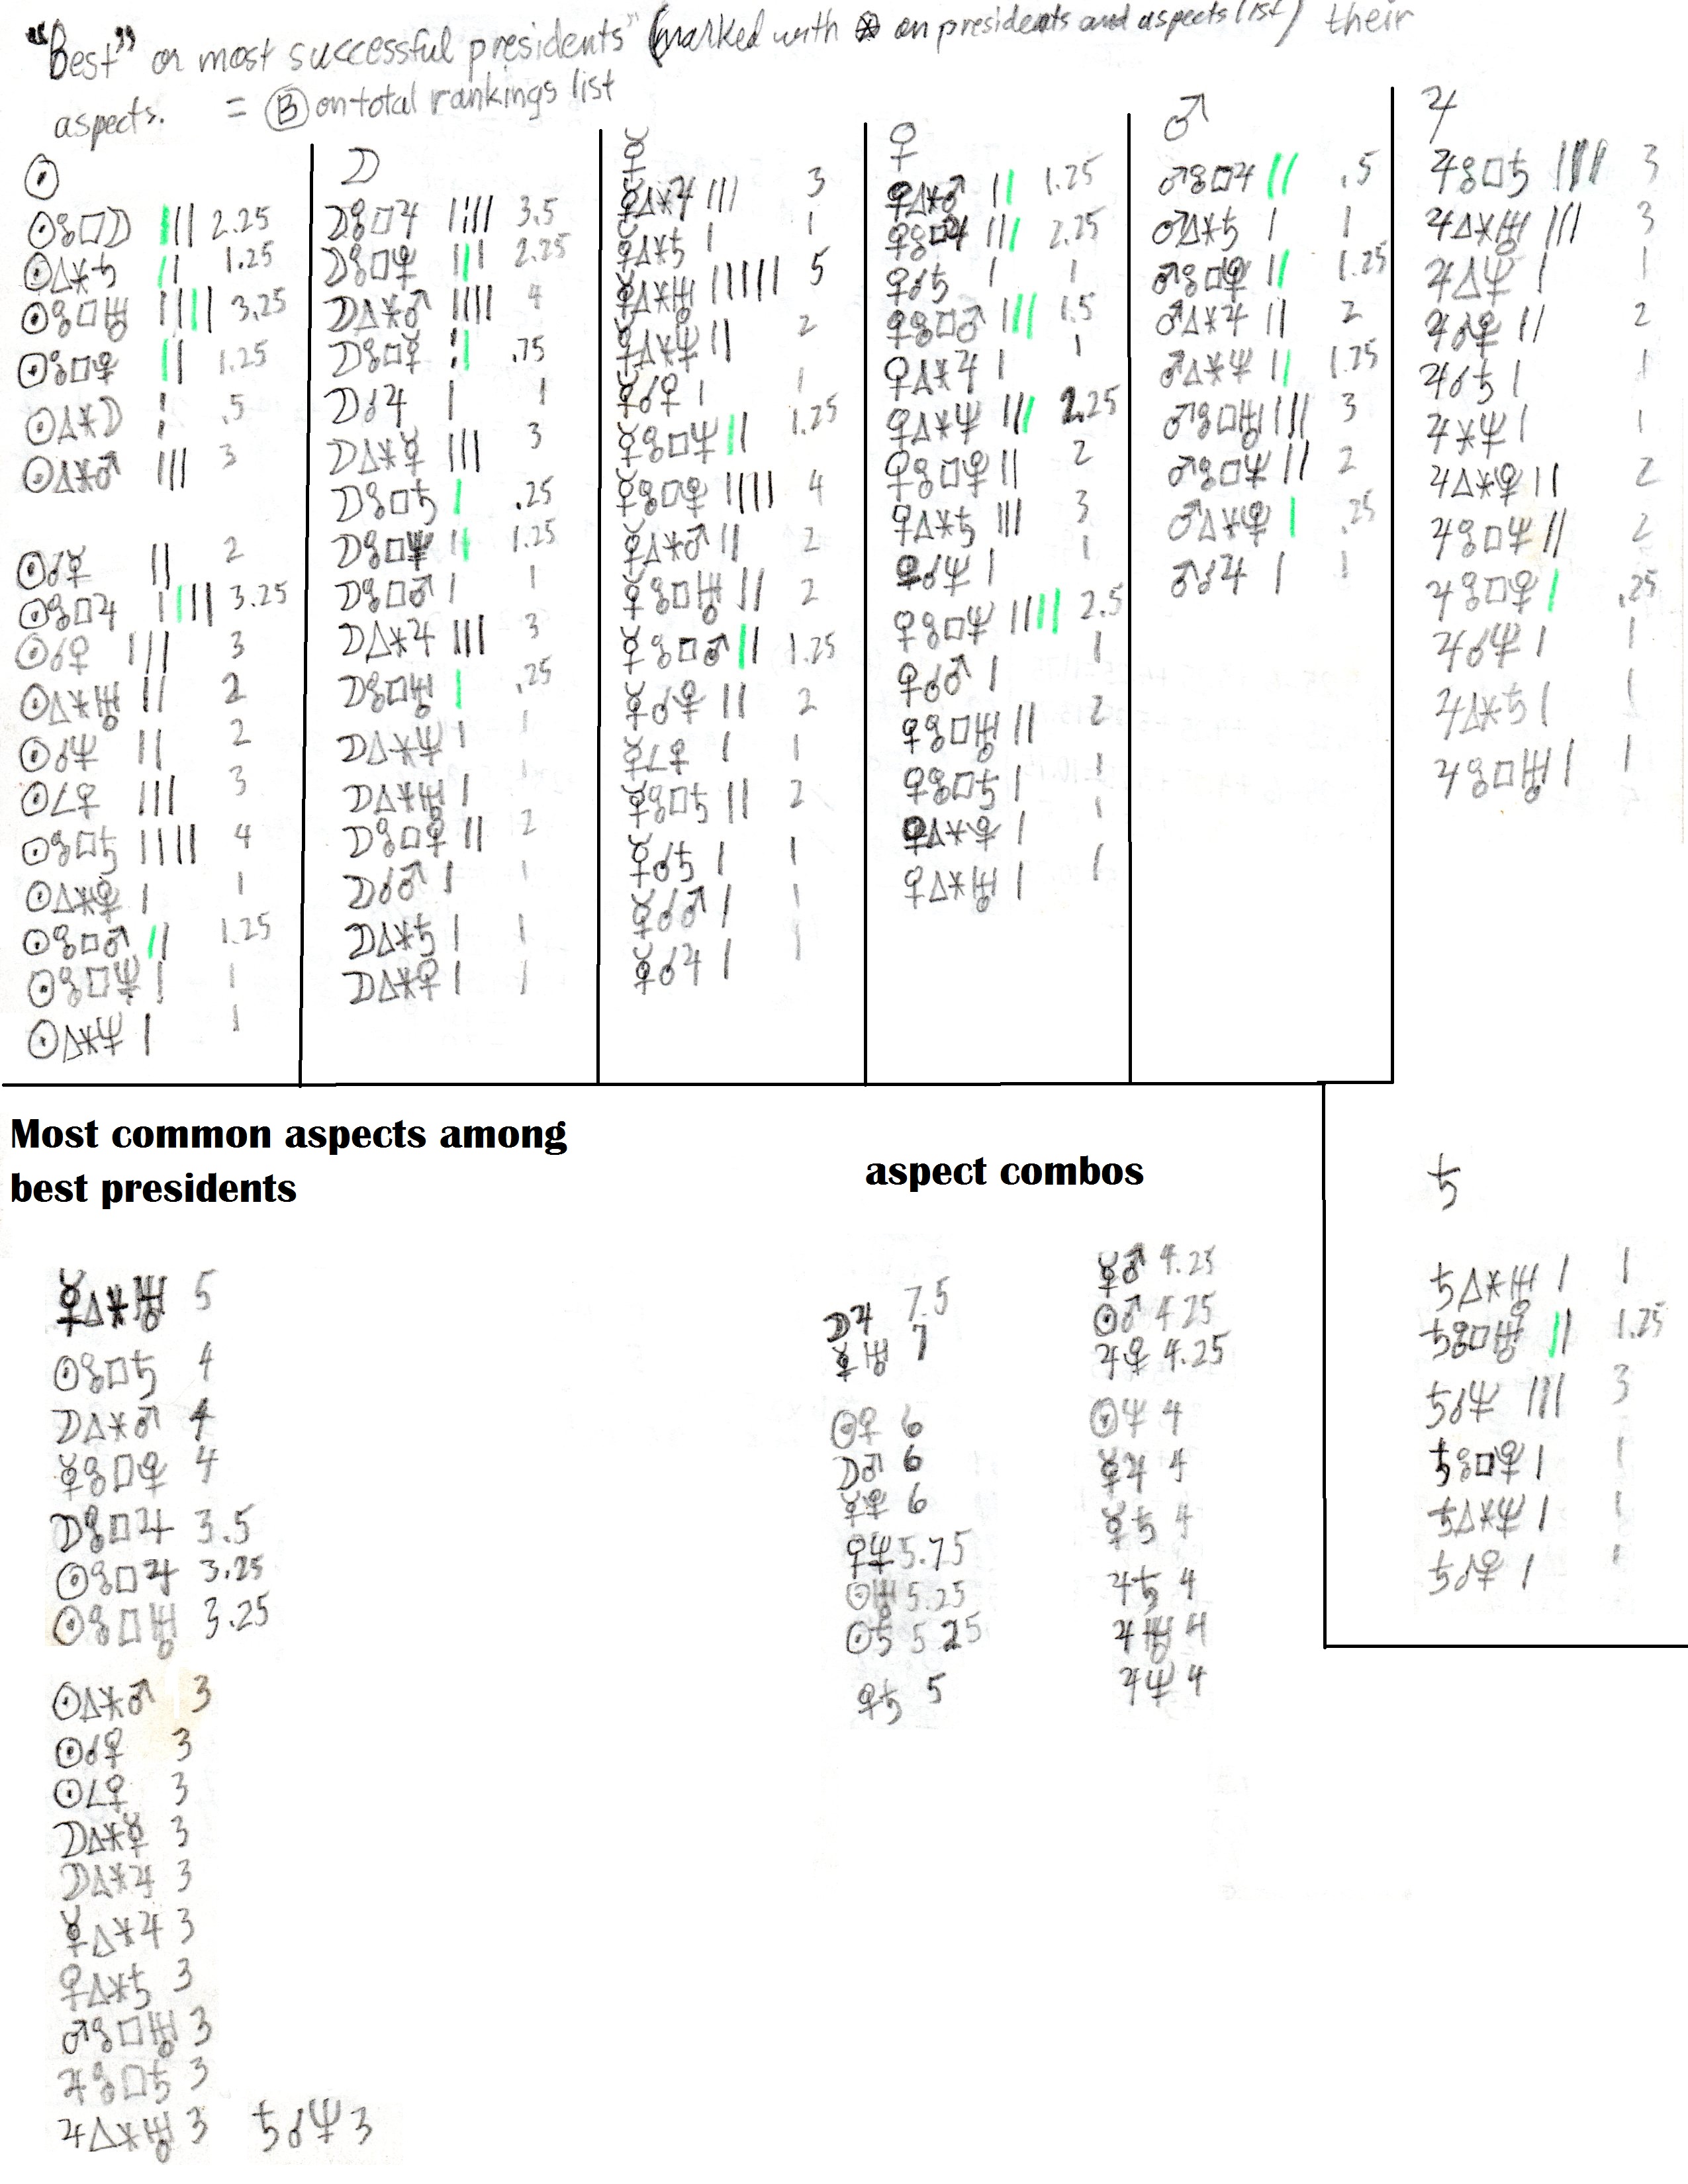 "Best" or most successful presidents" (marked with ⍟ on presidents and aspects list) their
aspects. = Ⓑ on total rankings list
☉
☉☍□☽ ||| 2.25
☉△⚹♄ || 1.25
☉☍□♅ |||| 3.25
☉☍□♇ || 1.25
☉△⚹☽ ¦ .5
☉△⚹♂ ||| 3
☉☌☿ || 2
☉☍□♃ |||| 3.25
☉☌♀ ||| 3
☉△⚹♅ || 2
☉☌♆ || 2
☉∠♀ ||| 3
☉☍□♄ |||| 4
☉△⚹♇ | 1
☉☍□♂ || 1.25
☉☍□♆ | 1
☉△⚹♆ | 1
☽
☽☍□♃ |||| 3.5
☽☍□♇ ||| 2.25
☽△⚹♂ |||| 4
☽☍□☿ ¦| .75
☽☌♃ | 1
☽△⚹☿ ||| 3
☽☍□♄ | .25
☽☍□♆ || 1.25
☽☍□♂ | 1
☽△⚹♃ ||| 3
☽☍□♅ | .25
☽△⚹♆ | 1
☽△⚹♅ | 1
☽☍□♀ || 2
☽☌♂ | 1
☽△⚹♄ | 1
☽△⚹♀ | 1
☿
☿△⚹♃ ||| 3
☿△⚹♄ | 1
☿△⚹♅ ||||| 5
☿△⚹♆ || 2
☿☌♀ | 1
☿☍□♆ || 1.25
☿☍□♇ |||| 4
☿△⚹♂ || 2
☿☍□♅ || 2
☿☍□♂ || 1.25
☿☌♇ || 2
☿∠♀ | 1
☿☍□♄ || 2
☿☌♄ | 1
☿☌♂ | 1
☿☌♃ | 1
♀
♀△⚹♂ || 1.25
♀☍□♃ ||| 2.25
♀☌♄ | 1
♀☍□♂ ||| 1.5
♀△⚹♃ | 1
♀△⚹♆ ||| 2.25
♀☍□♇ || 2
♀△⚹♄ ||| 3
♀☌♆ | 1
♀☍□♆ |||| 2.5
♀☌♂ | 1
♀☍□♅ || 2
♀☍□♄ | 1
♀△⚹♇ | 1
♀△⚹♅ | 1
♂
♂☍□♃ || .5
♂△⚹♄ | 1
♂☍□♇ || 1.25
♂△⚹♃ || 2
♂△⚹♆ || 1.25
♂☍□♅ ||| 3
♂☍□♆ || 2
♂△⚹♇ | .25
♂☌♃ | 1
♃
♃☍□♄ |||| 3
♃△⚹♅ ||| 3
♃△♆ | 1
♃☌♇ || 2
♃☌♄ | 1
♃⚹♆ | 1
♃△⚹♇ || 2
♃☍□♆ || 2
♃☍□♇ | .25
♃☌♆ | 1
♃△⚹♄ | 1
♃☍□♅ | 1
Most common aspects among
best presidents
☿△⚹♅ 5
☉☍□♄ 4
☽△⚹♂ 4
☿☍□♇ 4
☽☍□♃ 3.5
☉☍□♃ 3.25
☉☍□♅ 3.25
☉△⚹♂ 3
☉☌♀ 3
☉∠♀ 3
☽△⚹☿ 3
☽△⚹♃ 3
☿△⚹♃ 3
♀△⚹♄ 3
♂☍□♅ 3
♃☍□♄ 3
♃△⚹♅ 3 ♄☌♆ 3
aspect combos
☽♃ 7.5
☿♅ 7
☉♀ 6
☽♂ 6
☿♇ 6
♀♆ 5.75
☉♅ 5.25
☉♄ 5 25
♀♄ 5
☿♂ 4.25
☉♂ 4 25
♃♇ 4.25
☉♆ 4
☿♃ 4
☿♄ 4
♃♄ 4
♃♅ 4
♃♆ 4
♄
♄△⚹♅ | 1
♄☍□♅ || 1.25
♄☌♆ ||| 3
♄☍□♇ | 1
♄△⚹♆ | 1
♄☌♇ | 1